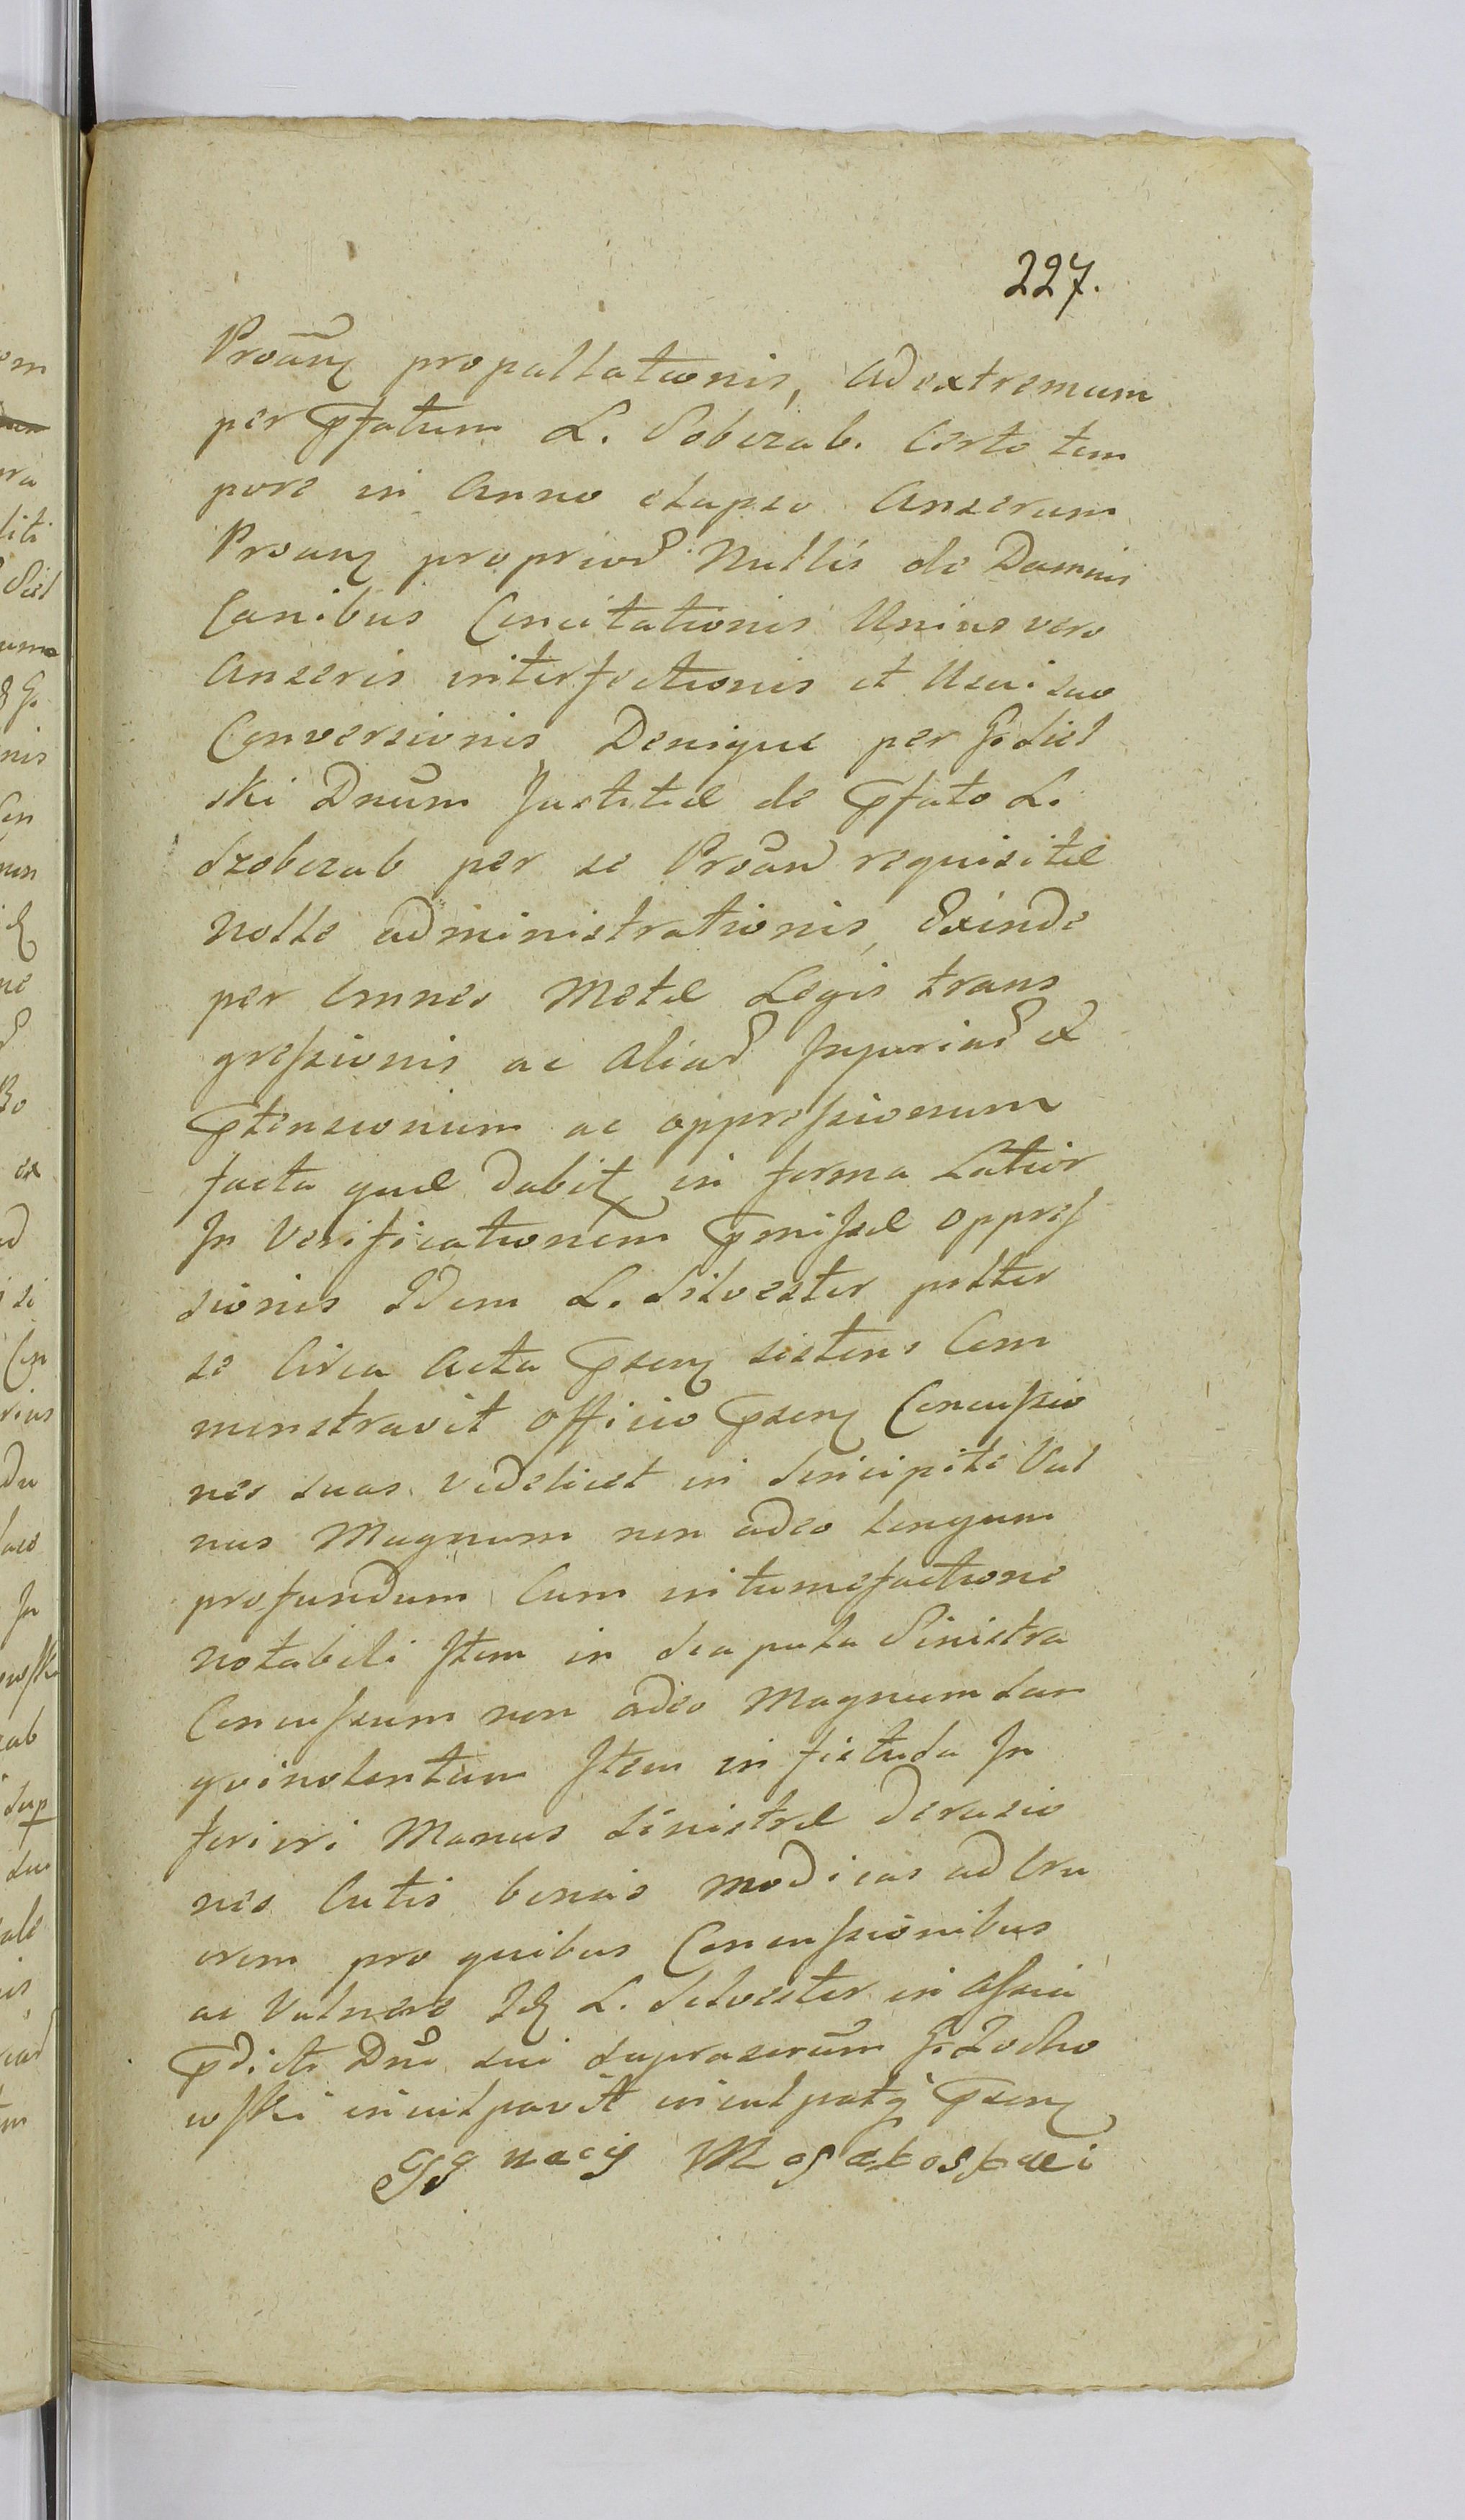 227.
Proãnꝫ propallationis, ad extremum
per ꝓfatum L. Sobczab. Certo tem
pore in Anno elapso Anserum
Proanꝫ propriorũ Nullis de Damnis
Canibus Concitationis Unius vero
Anseris interfectionis et Usui suo
Conversionis Denique per G. Siel
ski Dnum Justitiæ de ꝓfato L.
Szobczab per se Proan requisitæ
Nolle administrationis, Exinde
per Omnes Metæ Legis trans
gressionis ac aliarũ Injuriarũ et
ꝓtensionum ac oppressionum
facta quæ dabitꝫ in forma Latior
In Verificationem ꝓmissæ oppres
sionis Idem L. Silvester
se Circa Acta ꝓsenꝫ sistens Com
monstravit Officio ꝓsenꝫ Concussio
nes suas videlicet in Sincipite Vul
nus Magnum non adeo longum
profundum Cum intumefactione
notabili Item in Scapula Sinistra
Concussum non adeo Magnum San
gvinolentum Item in fistula In
feriori Manus Sinistræ derasio
nes Cutis binas modicas ad Cru
orem pro quibus Concussionibus
ac Vulnere Idꝫ L. Silvester in Assia
ꝓdicti Dni sui suprascrum G. Zocho
wski inculpavit inculpatqꝫ ꝓsenꝫ